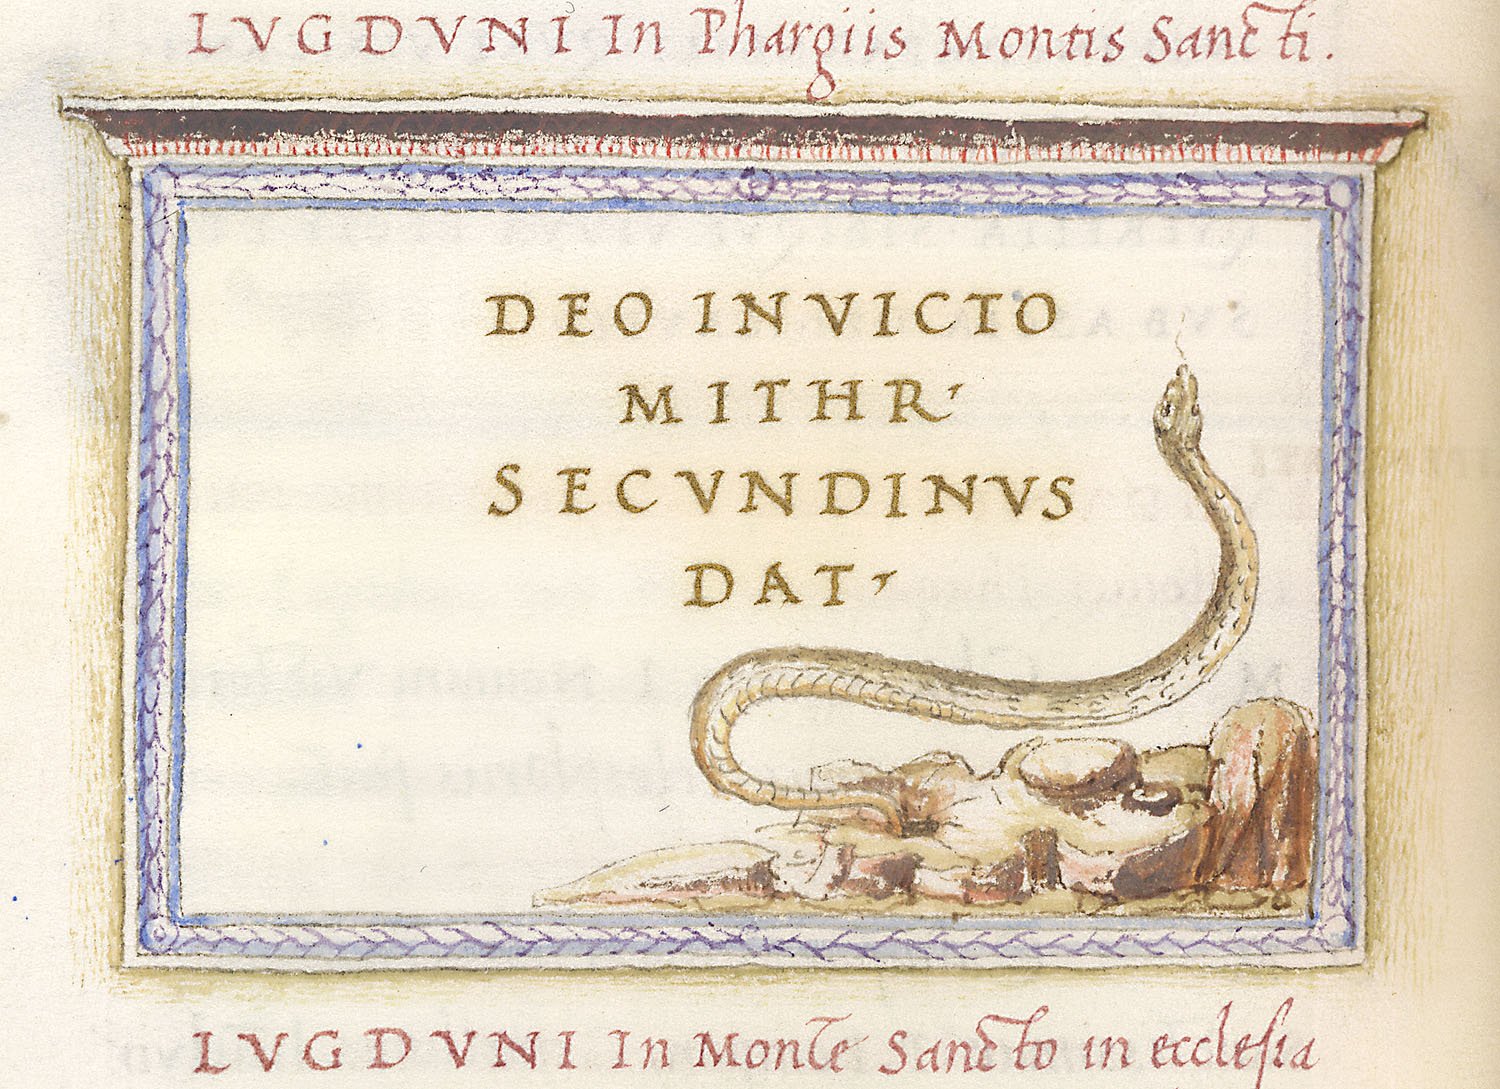 LVGDVNI In Phargiis Montis Sancti.
DEO INVICTO
MITHR,
SECVNDINVS
DAT,
LVGDVNI In Monte Sancto in ecclesia